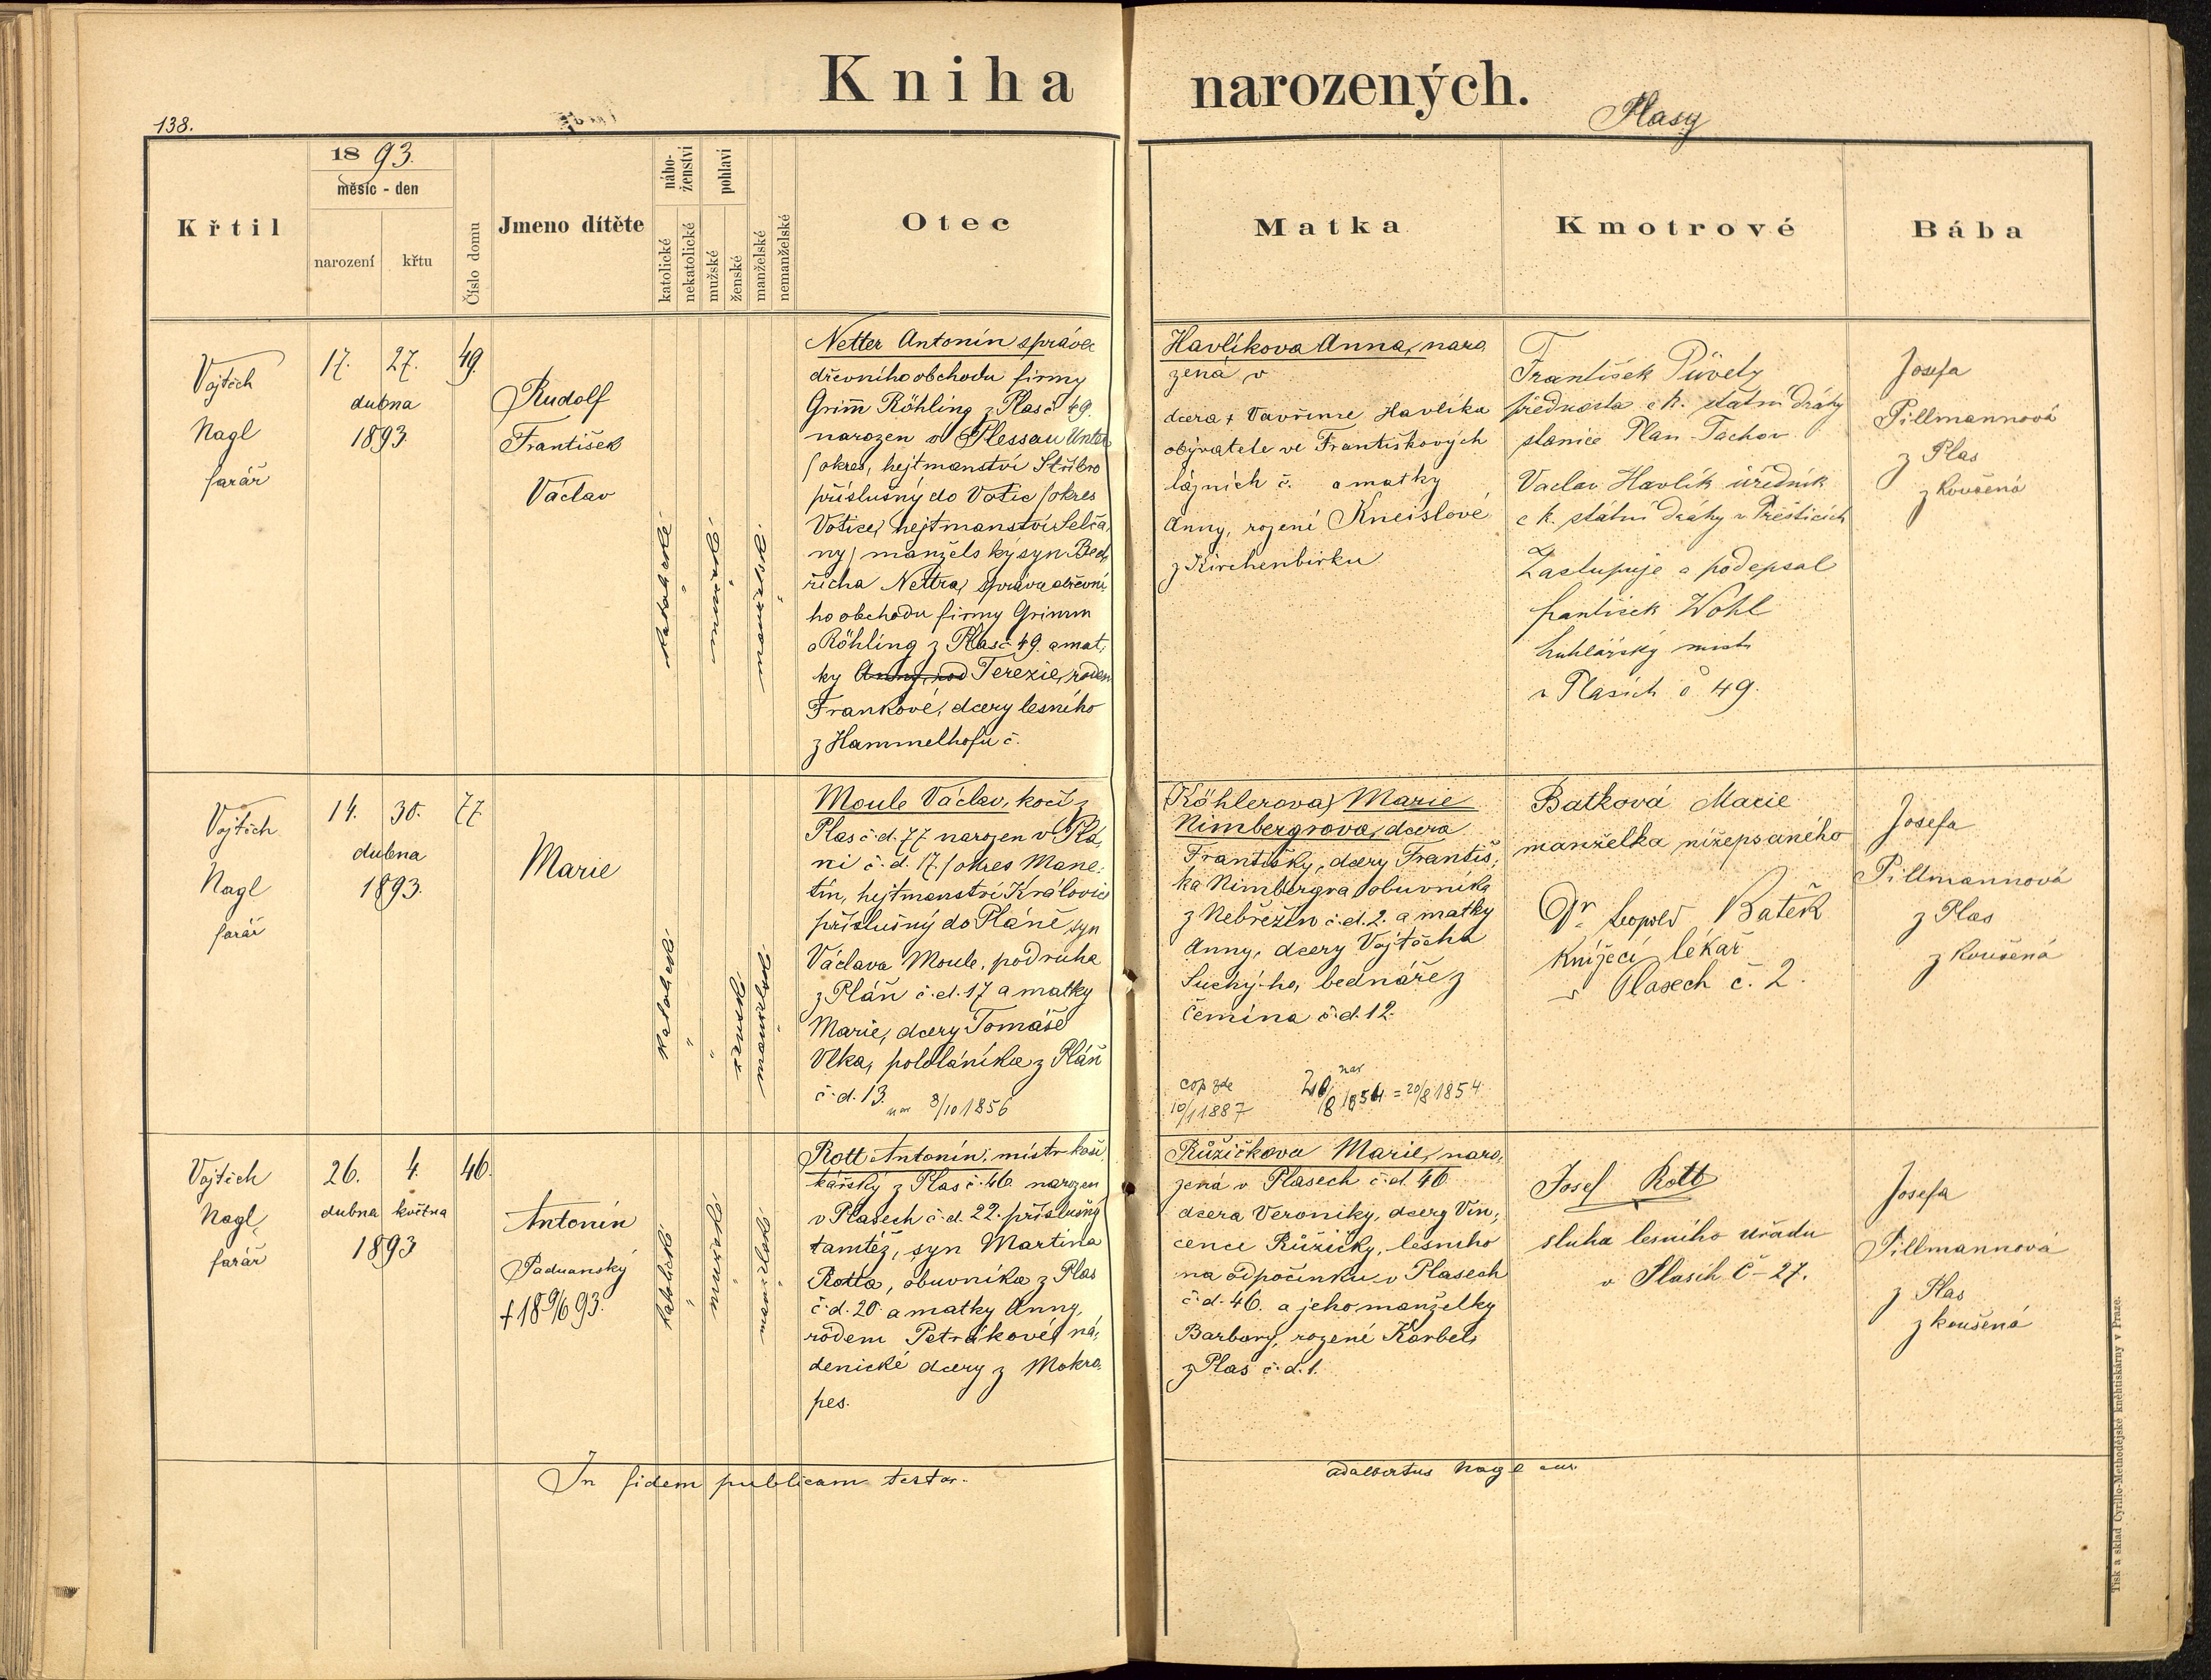 Kniha narozených.
138.
Plasy
Křtil
1893.
měsíc - den
narození
křtu
Číslo domu
Jmeno dítěte
nábo-
ženství
katolické
nekatolické
pohlaví
mužské
ženské
manželské
nemanželské
Otec
Matka
Kmotrové
Bába
Vojtěch
Nagl
farář
17. 27.
dubna
1893
49.
Rudolf
František
Václav
katolické
mužské
manželské
Netter Antonín správce
dřevního obchodu firmy
Grimm Röhling z Plas č 49.
narozen v Plessau Unter
/okres, hejtmanství Stříbro
příslušný do Votic /okres
Votice, hejtmanství Selča,
ny/ manželský syn Bed,
řicha Nettra, správce dřevní,
ho obchodu firmy Grimm
a Röhling z Plas č 49. a mat,
ky Anny, rod Terezie, rodem
Frankové, dcery lesního
z Hammelhofu č.
Havlíkova Anna, naro
zená v
dcera + Vavřince Havlíka
obyvatele ve Františkových
lázních č. a matky
Anny, rozené Kneislové
z Kirchenbirku
František Püvely
přednosta c k. státní dráhy
stanice Plan-Tachov
Vaclav Havlík úředník
c k. státní dráhy v Přešticích
Zastupuje a podepsal
frantisek Wohl
truhlářský mistr
v Plasích č 49.
Josefa
Pillmannová
z Plas
zkoušená
Vojtěch
Nagl
farář
14. 30.
dubna
1893.
77
Marie
katolické
ženské
manželské
Moule Václav, kočí z
Plas č.d. 77 narozen v Plá,
ni č.d. 17. /okres Mane:
tín, hejtmanství Královic
příslušný do Pláně, syn
Václava Moule, podruha
z Pláň č.d. 17 a matky
Marie, dcery Tomáše
Vlka, pololáníka z Pláň
č.d. 13.
nar 3/10 1856
Köhlerova) Marie
Nimbergrova, dcera
Františky, dcery Františ,
ka Nimbergra obuvníka
z Nebřezin č.d. 2. a matky
Anny, dcery Vojtěcha
Suchý-ho, bednáře z
Čemína č.d. 12.
cop zde
10/1 1887
nar
20/8 1854 = 20/8 1854
Batková Marie
manželka nížepsaného
Dr. Leopold Batěk
knížecí lékař
v Plasech č. 2.
Josefa
Pillmannová
z Plas
zkoušená
Vojtěch
Nagl,
farář
26. 4.
dubna května
1893
46.
Antonín
Paduanský
† 18 9/6 93.
katolické
mužské
manželské
Rott Antonín, mistr koší,
kářský z Plas č. 46 narozen
v Plasech č.d. 22. příslušný
tamtéž, syn Martina
Rotta, obuvníka z Plas
č.d. 20. a matky Anny,
rodem Petrákové, ná,
denické dcery z Mokro,
pes.
Růžičkova Marie, naro,
zená v Plasech č.d. 46
dcera Veroniky, dcery Vin,
cence Růžičky, lesního
na odpočinku v Plasech
č.d. 46. a jeho manželky
Barbory, rozené Korbel,
z Plas č.d. 1.
Josef Rott
sluha lesního uřadu
v Plasih č-27.
Josefa
Pillmannová
z Plas
zkoušená
In fidem publicam testor.
Adalbertus Nagl cur.
Tisk a sklad Cyrillo-Methodějské kněhtiskárny v Praze.